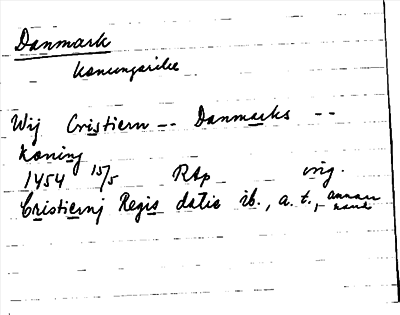 Danmark
konungarike
Wij Cristiern -- Danmarks --
koning
1454 15/5 RAp orig.
Cristiernj Regis datis ib., a. t., annan hand